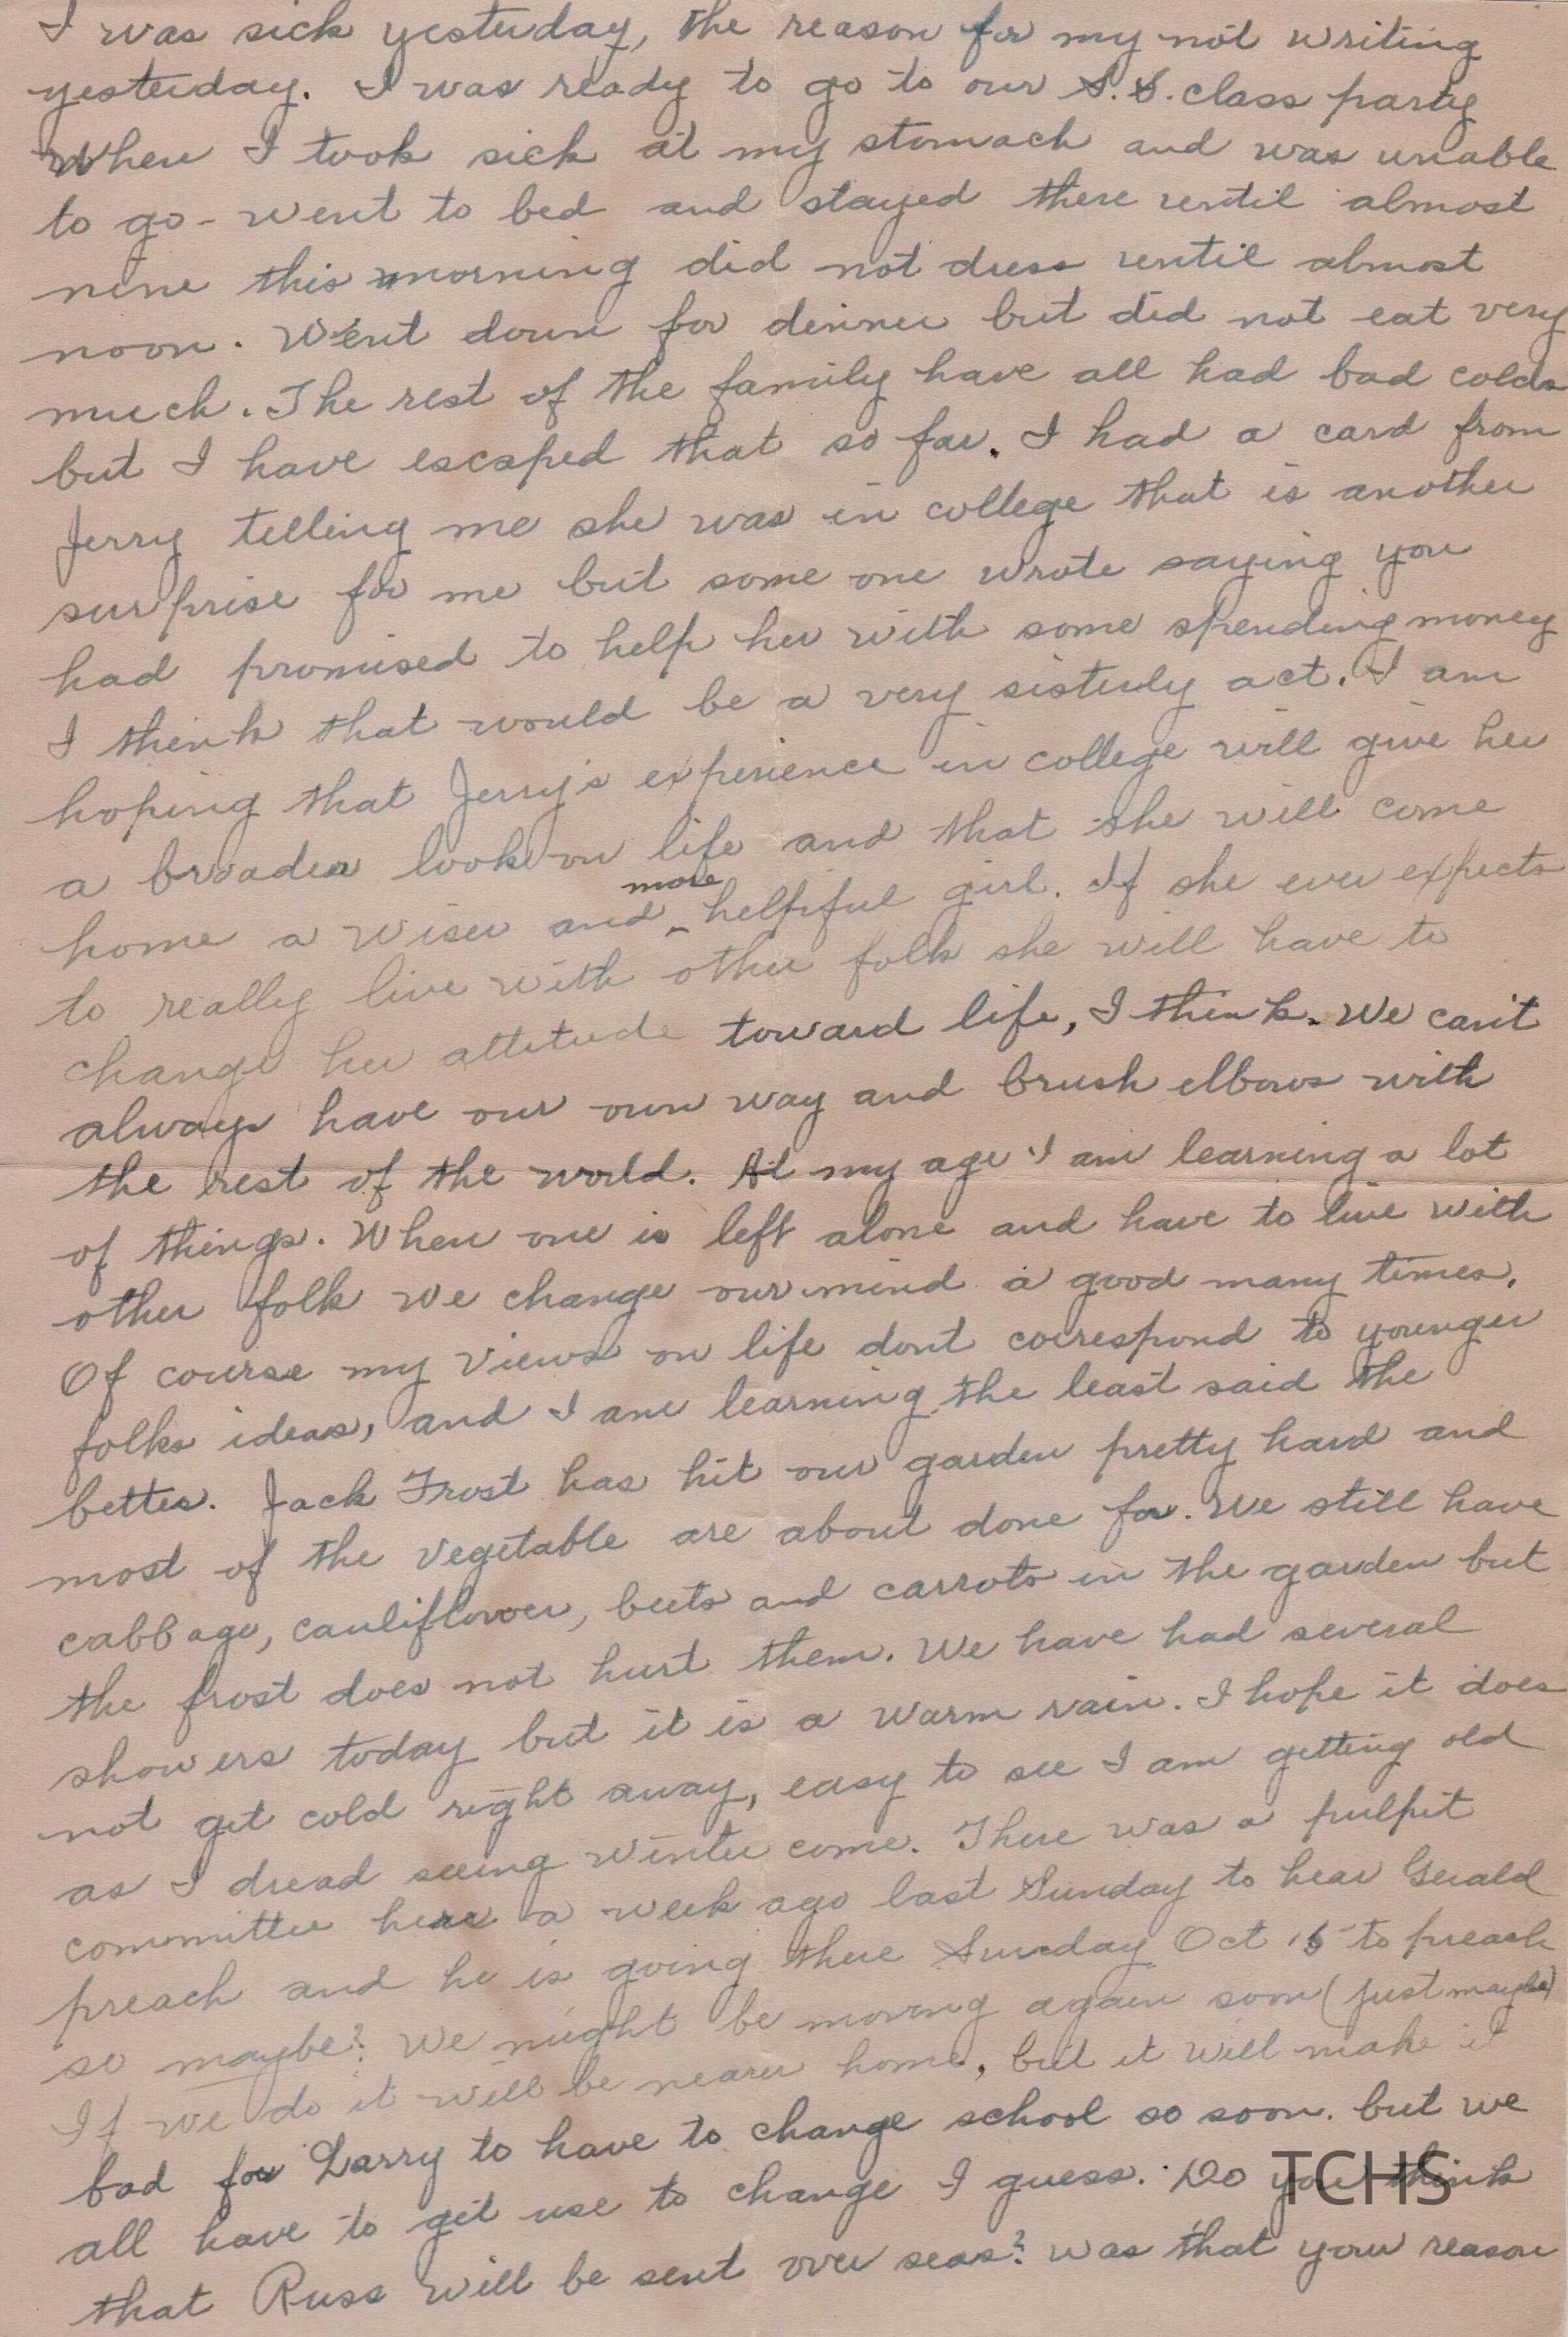 I was sick yesterday, the reason for my not writing
yesterday. I was ready to go to our S.S. class party
When I took sick at my stomach and was unable
to go - went to bed and stayed there until almost
nine this morning did not dress until almost
noon. Went down for dinner but did not eat very
much. The rest of the family have all had bad colds
but I have escaped that so far. I had a card from
Jerry telling me she was in college that is another
surprise for me but some one wrote saying you
had promised to help her with some spending money
I think that would be a very sisterly act. I am
hoping that Jerry's experience in college will give her
a broader look on life and that she will come
home a wiser and more helpful girl. If she ever expects
to really live with other folk she will have to
change her attitude toward life, I think. We can't
always have our own way and brush elbows with
the rest of the world. At my age I am learning a lot
of things. When one is left alone and have to live with
other folk we change our mind a good many times.
Of course my views on life dont correspond to younger
folks ideas, and I am learning the least said the
better. Jack Frost has hit our garden pretty hard and
most of the vegetable are about done for. We still have
cabbage, cauliflower, beets and carrots in the garden but
the frost does not hurt them. We have had several
showers today but it is a warm rain. I hope it does
not get cold right away, easy to see I am getting old
as I dread seeing winter come. There was a pulpit
committee here a week ago last Sunday to hear Gerald
preach and he is going there Sunday Oct 15 to preach
so maybe? We might be moving again soon (just maybe)
If we do it will be nearer home, but it will make it
bad for Larry to have to change school so soon. but we
all have to get use to change I guess. Do you think
that Russ will be sent over seas? was that your reason
TCHS